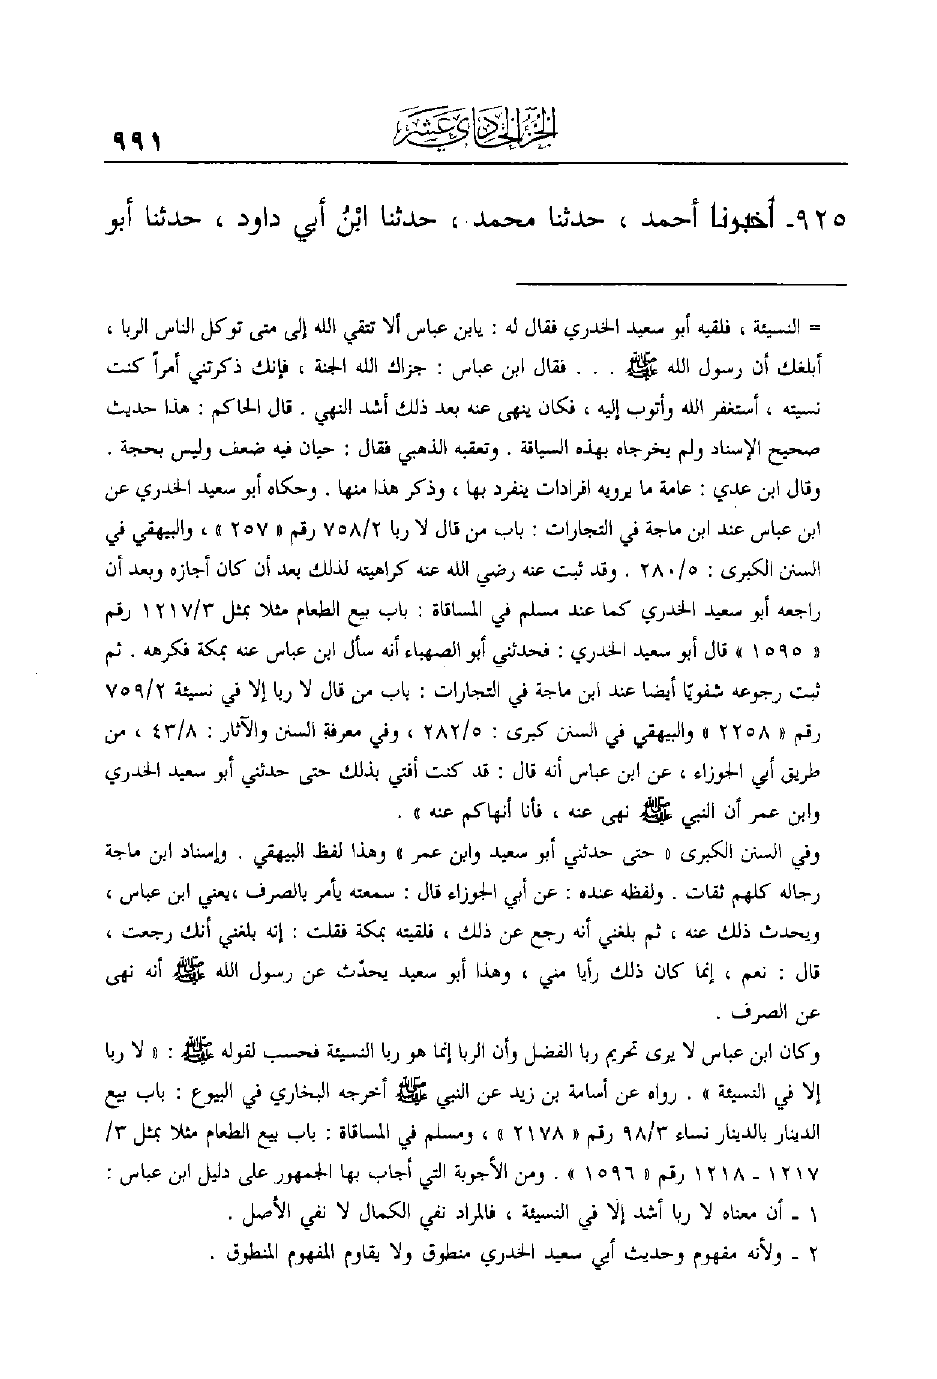 الجزء الحادي عشر
٩٩١
٩٢٥- أخبرنا أحمد ، حدثنا محمد ، حدثنا ابْنُ أبي داود ، حدثنا أبو
= النسيئة ، فلقيه أبو سعيد الخدري فقال له : يابن عباس ألا تتقي الله إلى متى توكل الناس الربا ،
أبلغك أن رسول الله ﷺ . . . فقال ابن عباس : جزاك الله الجنة ، فإنك ذكرتني أمراً كنت
نسيته ، أستغفر الله وأتوب إليه ، فكان ينهى عنه بعد ذلك أشد النهي . قال الحاكم : هذا حديث
صحيح الإسناد ولم يخرجاه بهذه السياقة . وتعقبه الذهبي فقال : حيان فيه ضعف وليس بحجة .
وقال ابن عدي : عامة ما يرويه افرادات ينفرد بها ، وذكر هذا منها . وحكاه أبو سعيد الخدري عن
ابن عباس عند ابن ماجة في التجارات : باب من قال لا ربا ٧٥٨/٢ رقم « ٢٥٧ » ، والبيهقي في
السنن الكبرى : ٢٨٠/٥ . وقد ثبت عنه رضي الله عنه كراهيته لذلك بعد أن كان أجازه وبعد أن
راجعه أبو سعيد الخدري كما عند مسلم في المساقاة : باب بيع الطعام مثلا بمثل ١٢١٧/٣ رقم
« ١٥٩٥ » قال أبو سعيد الخدري : فحدثني أبو الصهباء أنه سأل ابن عباس عنه بمكة فكرهه . ثم
ثبت رجوعه شفويّا أيضا عند ابن ماجة في التجارات : باب من قال لا ربا إلا في نسيئة ٧٥٩/٢
رقم « ٢٢٥٨ » والبيهقي في السنن كبرى : ٢٨٢/٥ ، وفي معرفة السنن والآثار : ٤٣/٨ ، من
طريق أبي الجوزاء ، عن ابن عباس أنه قال : قد كنت أفتي بذلك حتى حدثني أبو سعيد الخدري
وابن عمر أن النبي ﷺ نهى عنه ، فأنا أنهاكم عنه » .
وفي السنن الكبرى « حتى حدثني أبو سعيد وابن عمر » وهذا لفظ البيهقي . وإسناد ابن ماجة
رجاله كلهم ثقات . ولفظه عنده : عن أبي الجوزاء قال : سمعته يأمر بالصرف ،يعني ابن عباس ،
ويحدث ذلك عنه ، ثم بلغني أنه رجع عن ذلك ، فلقيته بمكة فقلت : إنه بلغني أنك رجعت ،
قال : نعم ، إنما كان ذلك رأيا مني ، وهذا أبو سعيد يحدّث عن رسول الله ﷺ أنه نهى
عن الصرف .
وكان ابن عباس لا يرى تحريم ربا الفضل وأن الربا إنما هو ربا النسيئة فحسب لقوله ﷺ : « لا ربا
إلا في النسيئة » . رواه عن أسامة بن زيد عن النبي ﷺ أخرجه البخاري في البيوع : باب بيع
الدينار بالدينار نساء ٩٨/٣ رقم « ٢١٧٨ » ، ومسلم في المساقاة : باب بيع الطعام مثلا بمثل ٣/
١٢١٧ - ١٢١٨ رقم « ١٥٩٦ » . ومن الأجوبة التي أجاب بها الجمهور على دليل ابن عباس :
١ - أن معناه لا ربا أشد إلّا في النسيئة ، فالمراد نفي الكمال لا نفي الأصل .
٢ - ولأنه مفهوم وحديث أبي سعيد الخدري منطوق ولا يقاوم المفهوم المنطوق .